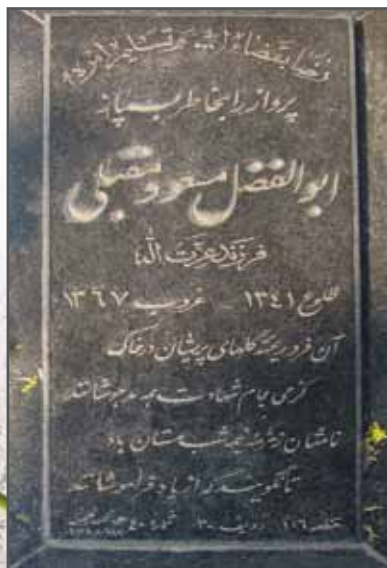 رضاً بقضائک و تسلیماً لامرک
پرواز را بخاطر بسپار
ابوالفضل مسعود مقبلی
فرزند عزت الله
طلوع ۱۳۴۱ - غروب ۱۳۶۷
آن فرو ریخته گلهای پریشان در خاک
کز می جام شهادت همه مدهوشانند
نامشان زمزمه نیمه شب مستان باد
تا نگویند که از یاد فراموشانند
قطعه ۱۰۶ ردیف ۳۰ شماره ۴۰